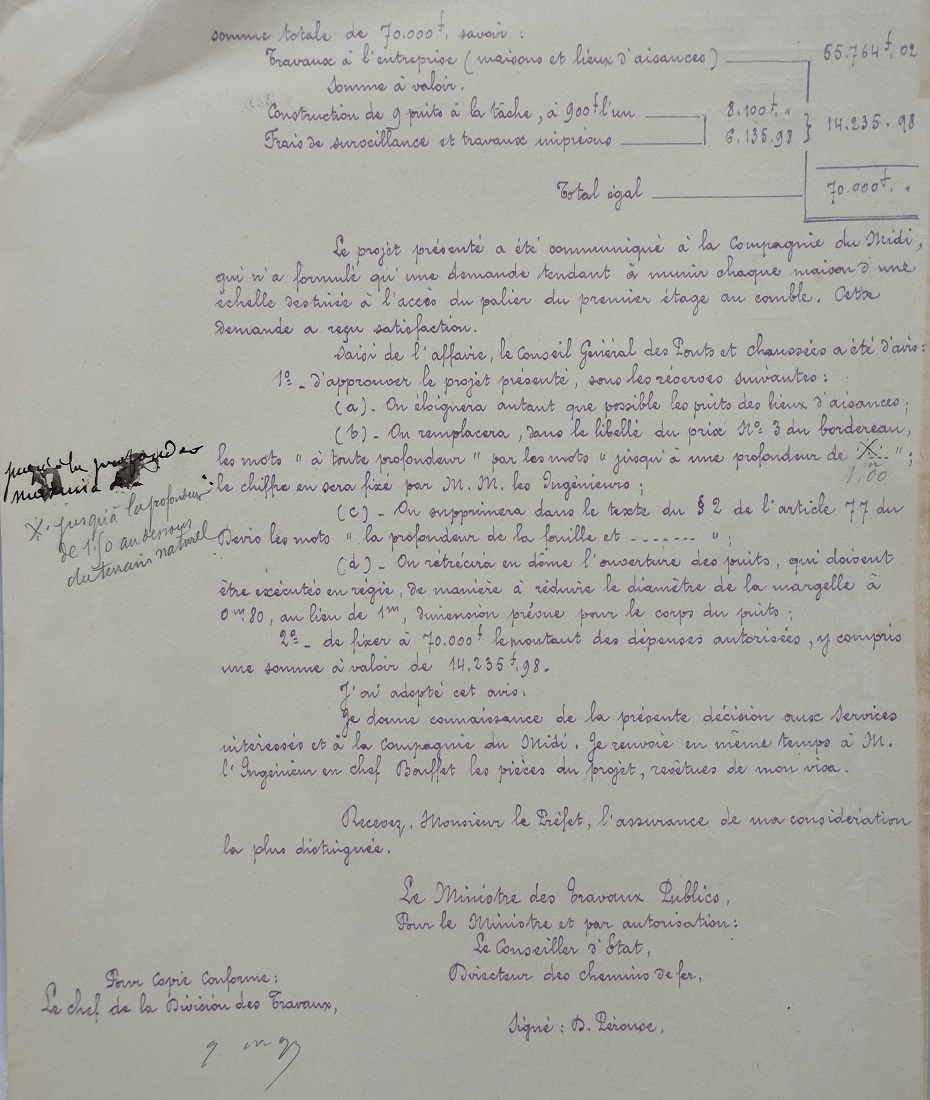 somme totale de 70.000f, savoir :
Travaux à l'entreprise (maisons et lieux d'aisances) 55.764f,02
Somme à valoir.
Construction de 9 puits à la tâche, à 900f l'un 8.100f,"
Frais de surveillance et travaux imprévus 6.135.98 } 14.235.98
Total égal 70.000f,"
Le projet présenté a été communiqué à la Compagnie du Midi,
qui n'a formulé qu'une demande tendant à munir chaque maison d'une
échelle destinée à l'accès du palier du premier étage au comble. Cette
demande a reçu satisfaction.
Saisi de l'affaire, le Conseil Général des Ponts et chaussées a été d'avis :
1º_ d'approuver le projet présenté, sous les réserves suivantes :
(a)_ On éloignera autant que possible les puits des lieux d'aisances ;
(b)_ On remplacera, dans le libellé du prix Nº 3 du bordereau,
les mots " à toute profondeur " par les mots " jusqu'à une profondeur de X... " ;
1m,00
le chiffre en sera fixé par M.M. les Ingénieurs ;
jusqu'à la profondeur
X. jusqu'à la profondeur
de 1.50 au dessous
du terrain naturel
(c)_ On supprimera dans le texte du § 2 de l'article 77 du
Devis les mots " la profondeur de la fouille et ------- " ;
(d)_ On rétrécira en dôme l'ouverture des puits, qui doivent
être exécutés en régie, de manière à réduire le diamètre de la margelle à
0m.80, au lieu de 1m, dimension prévue pour le corps du puits ;
2º_ de fixer à 70.000f le montant des dépenses autorisées, y compris
une somme à valoir de 14.235f,98.
J'ai adopté cet avis.
Je donne connaissance de la présente décision aux Services
intéressés et à la Compagnie du Midi. Je renvoie en même temps à M.
l'Ingénieur en chef Bouffet les pièces du projet, revêtues de mon visa.
Recevez, Monsieur le Préfet, l'assurance de ma considération
la plus distinguée.
Le Ministre des Travaux Publics,
Pour le Ministre et par autorisation :
Le Conseiller d'Etat,
Directeur des chemins de fer,
Signé : D. Pérouse.
Pour Copie Conforme :
Le chef de la Division des Travaux,